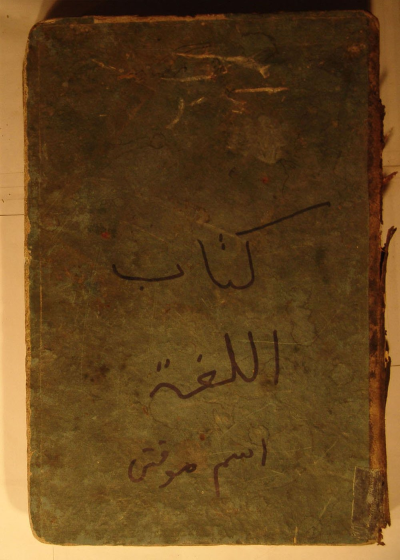 كتاب
اللغة
اسم موقتى